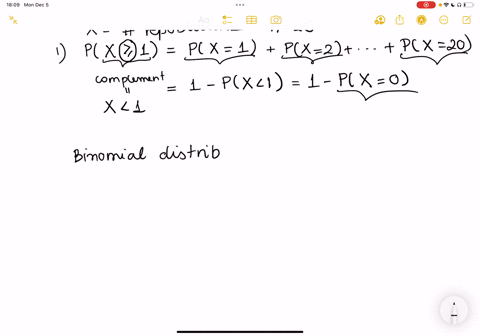 18:09 Mon Dec 5
X = #
1) P(X ≥ 1) = P(X = 1) + P(X=2) + ··· + P(X=20)
complement = 1 - P(X<1) = 1 - P(X=0)
=
X < 1
Binomial distrib